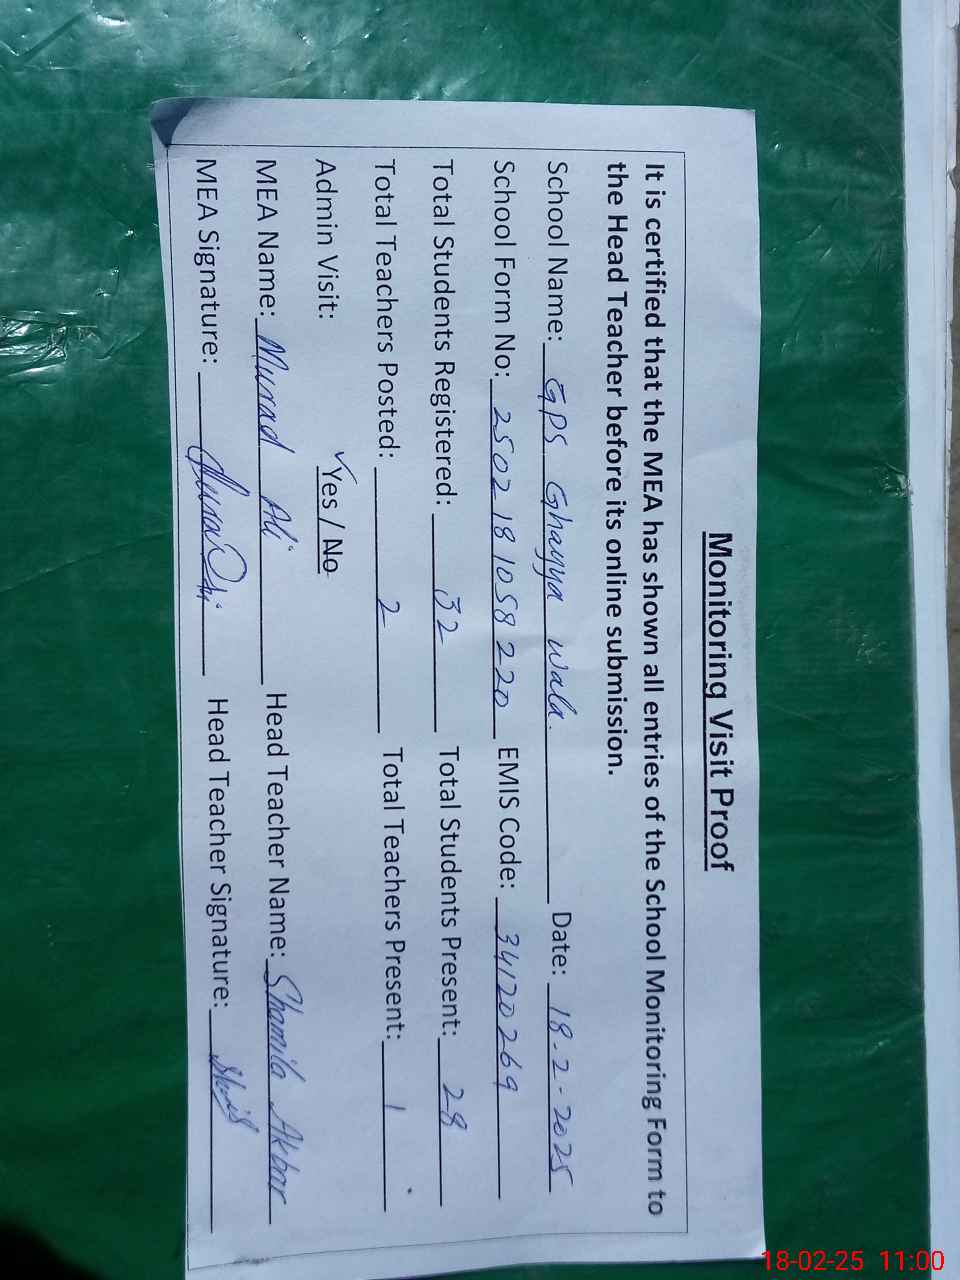 Monitoring Visit Proof
It is certified that the MEA has shown all entries of the School Monitoring Form to
the Head Teacher before its online submission.
School Name: GPS Ghayya Wala. Date: 18-2-2025
School Form No: 2502181058220 EMIS Code: 34120269
Total Students Registered: 32 Total Students Present: 28
Total Teachers Posted: 2 Total Teachers Present: 1
Admin Visit: ✓Yes / No
MEA Name: Murad Ali Head Teacher Name: Shamila Akbar
MEA Signature: Head Teacher Signature:
18-02-25 11:00